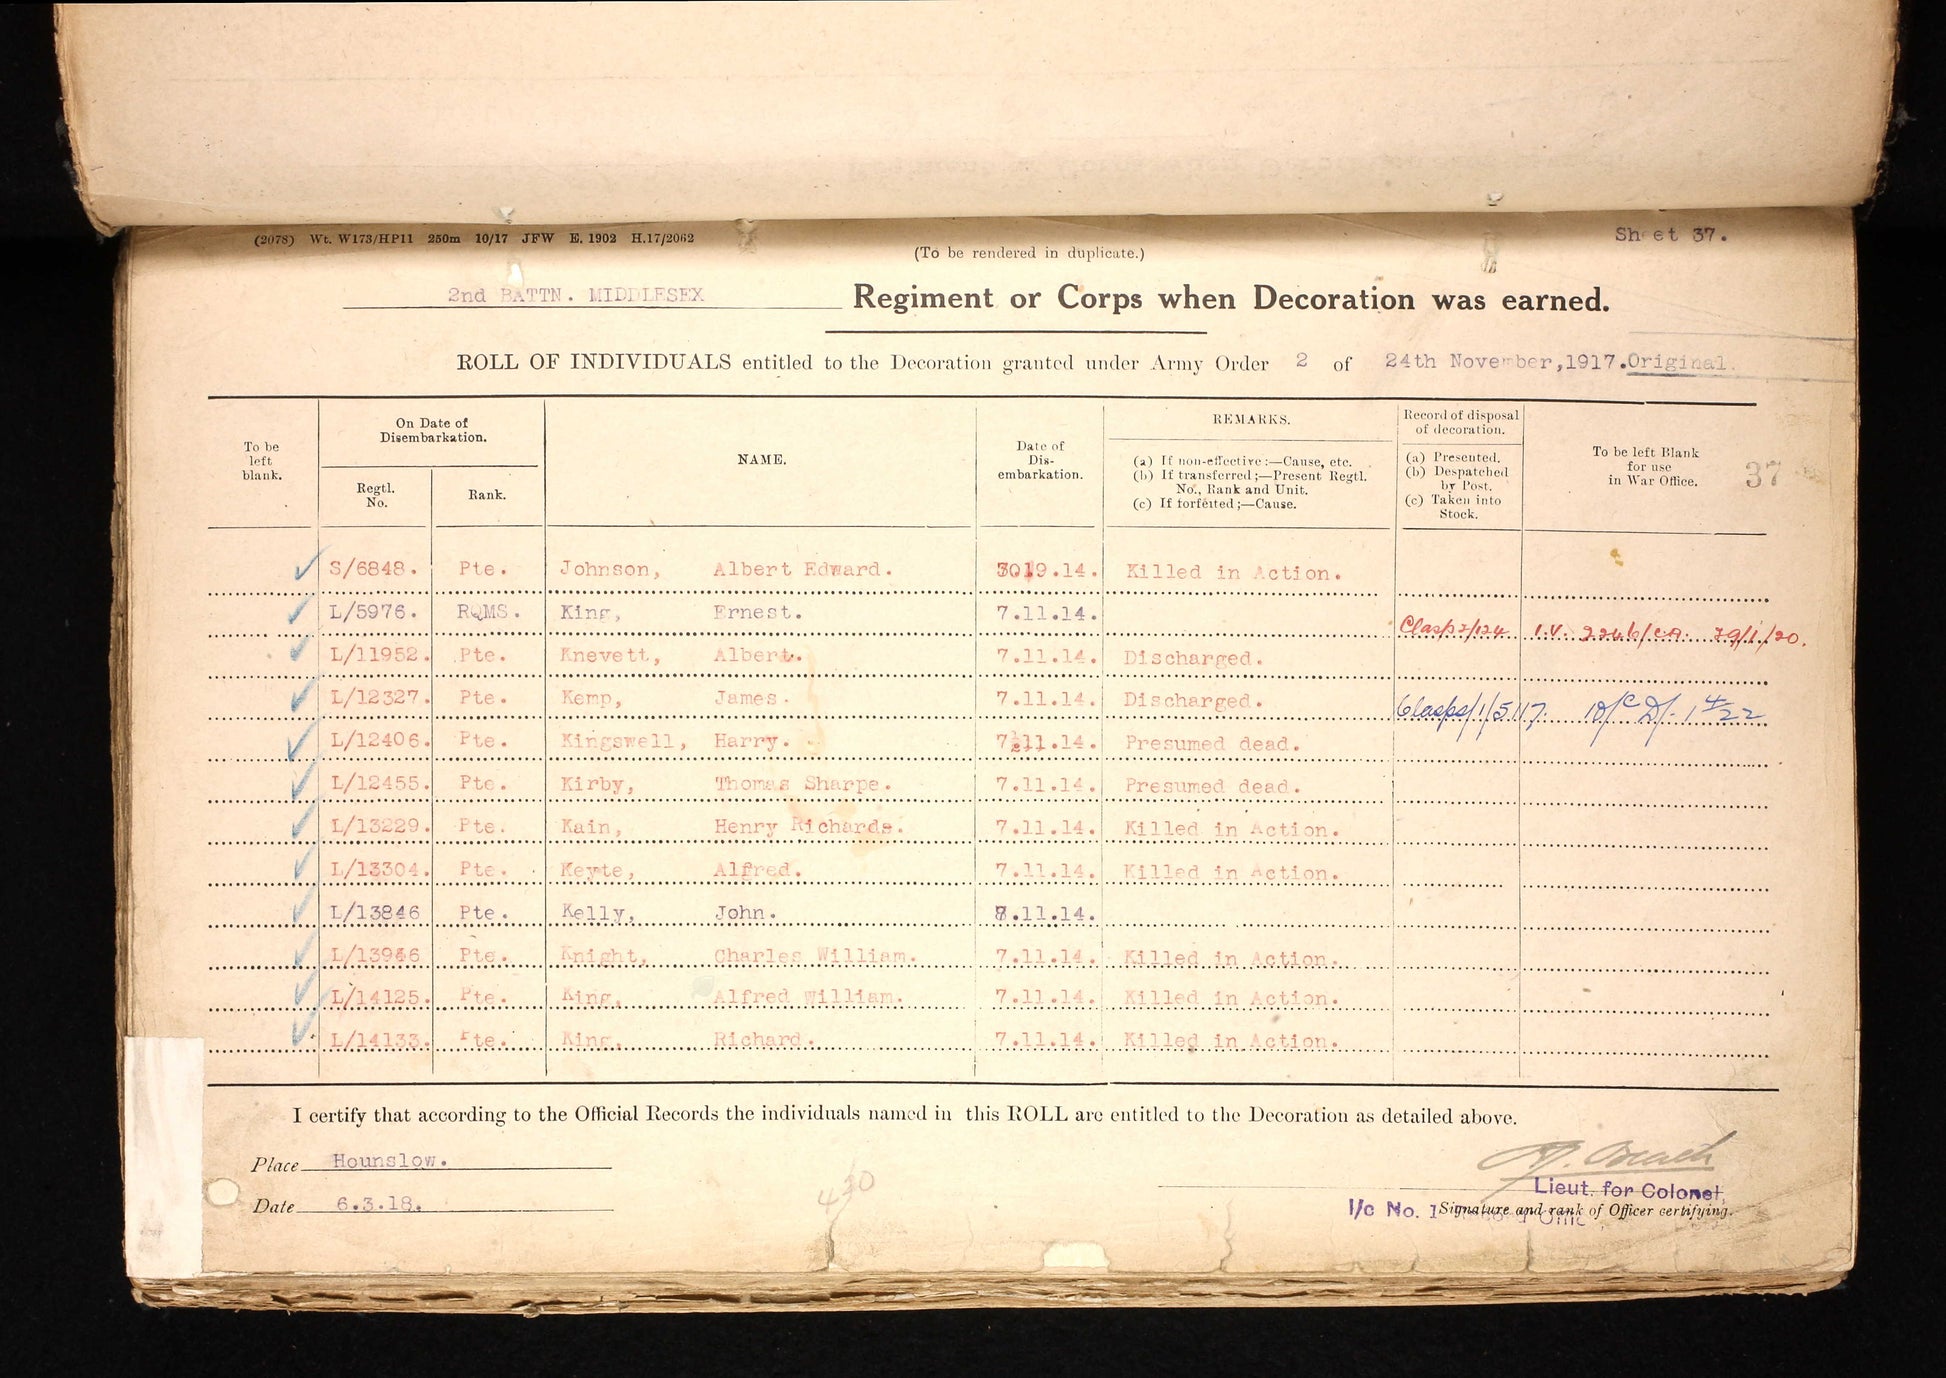 (2078) Wt. W173/HP11 250m 10/17 JFW E. 1902 H.17/2062
Sheet 37.
(To be rendered in duplicate.)
2nd BATTN. MIDDLESEX Regiment or Corps when Decoration was earned.
ROLL OF INDIVIDUALS entitled to the Decoration granted under Army Order 2 of 24th November, 1917. Original.
To be left blank.
On Date of Disembarkation.
Regtl. No.
Rank.
NAME.
Date of Dis-embarkation.
REMARKS.
(a) If non-effective :—Cause, etc.
(b) If transferred ;—Present Regtl. No., Rank and Unit.
(c) If forfeited ;—Cause.
Record of disposal of decoration.
(a) Presented.
(b) Despatched by Post.
(c) Taken into Stock.
To be left Blank for use in War Office.
37
S/6848. Pte. Johnson, Albert Edward. .14. Killed in Action.
L/5976. RQMS. King, Ernest. 7.11.14. Clasp I.V. /20.
L/11952. Pte. Knevett, Albert. 7.11.14. Discharged.
L/12327. Pte. Kemp, James. 7.11.14. Discharged. Clasps
L/12406. Pte. Kingswell, Harry. 11.14. Presumed dead.
L/12455. Pte. Kirby, Thomas Sharpe. 7.11.14. Presumed dead.
L/13229. Pte. Kain, Henry Richards. 7.11.14. Killed in Action.
L/13304. Pte. Keyte, Alfred. 7.11.14. Killed in Action.
L/13846 Pte. Kelly, John. .11.14.
L/13946 Pte. Knight, Charles William. 7.11.14. Killed in Action.
L/14125. Pte. King, Alfred William. 7.11.14. Killed in Action.
L/14133. Pte. King, Richard. 7.11.14. Killed in Action.
I certify that according to the Official Records the individuals named in this ROLL are entitled to the Decoration as detailed above.
Place Hounslow.
Date 6.3.18.
Lieut. for Colonel,
I/c No. 1
Signature and rank of Officer certifying.